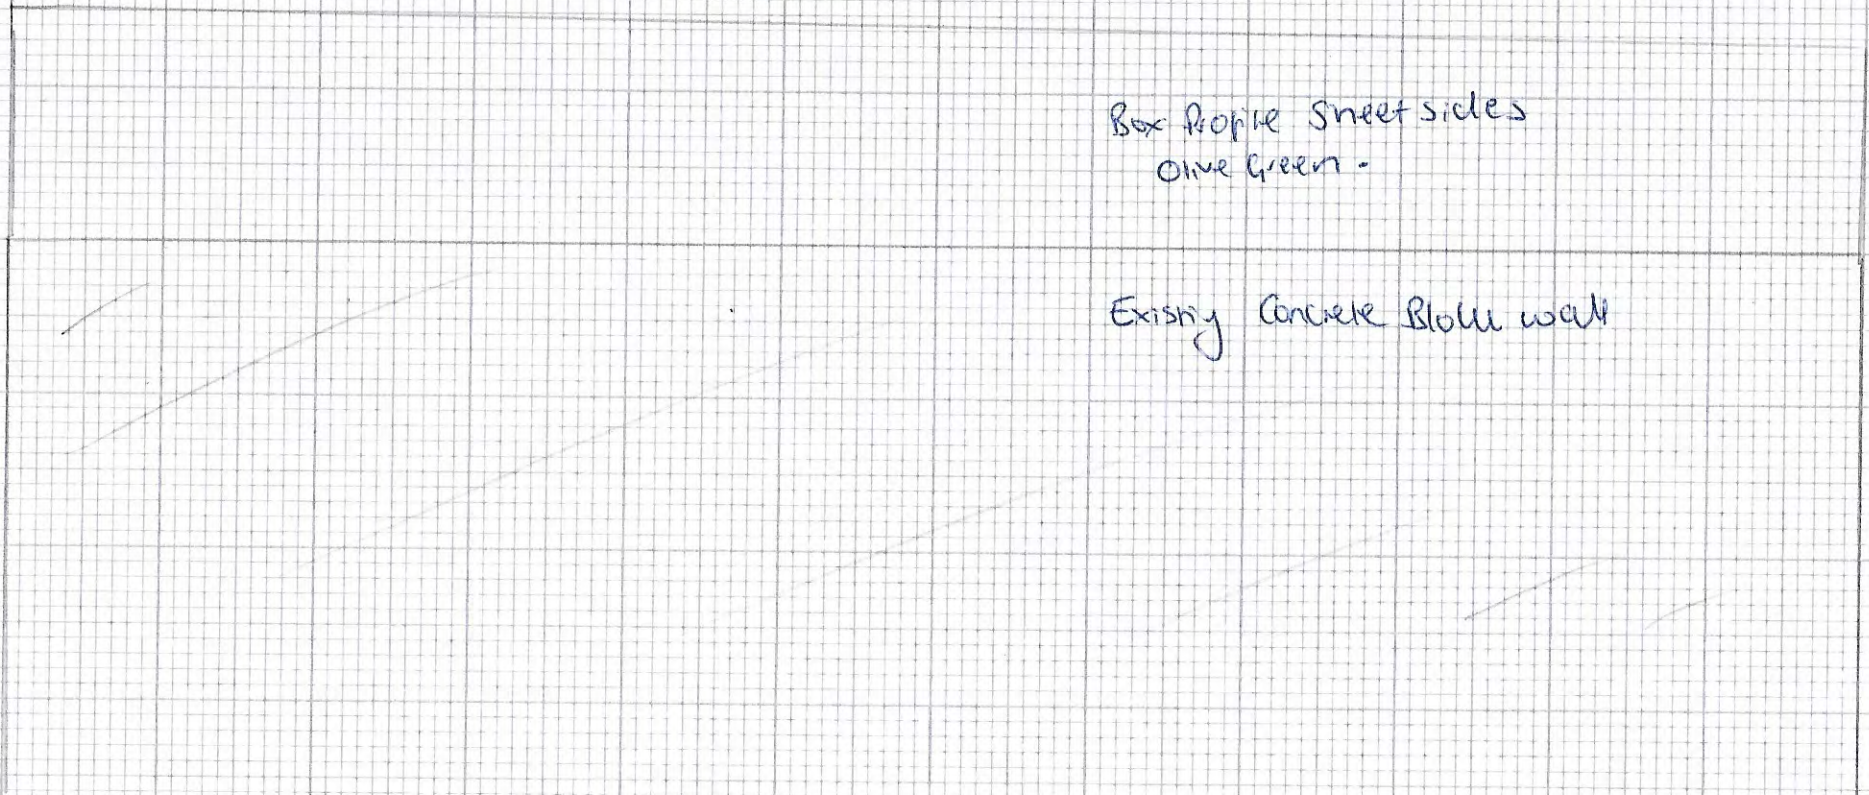 Box Profile Sheet sides
Olive Green -
Existing Concrete Block wall